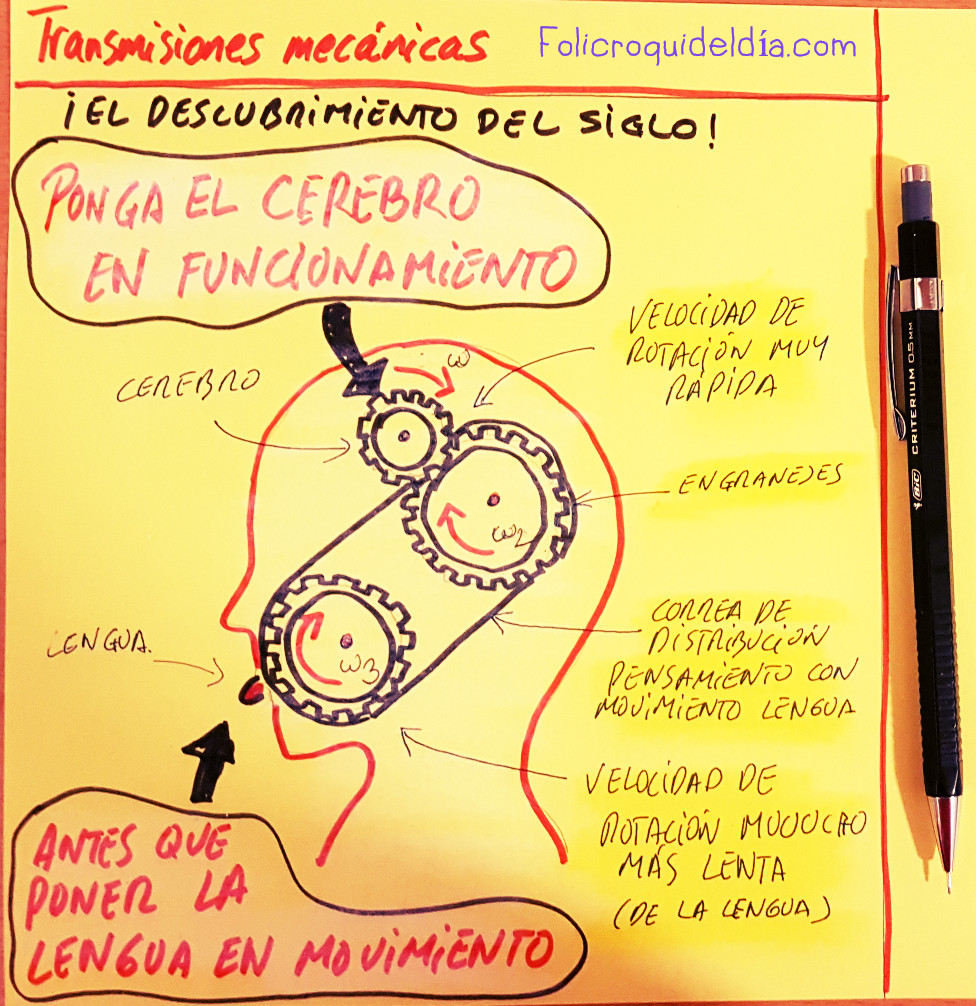 Transmisiones mecánicas
Folicroquideldía.com
¡EL DESCUBRIMIENTO DEL SIGLO!
PONGA EL CEREBRO
EN FUNCIONAMIENTO
VELOCIDAD DE
ROTACIÓN MUY
RÁPIDA
CEREBRO
ω
ENGRANEJES
ω2
CORREA DE
DISTRIBUCIÓN
PENSAMIENTO CON
MOVIMIENTO LENGUA
LENGUA.
ω3
VELOCIDAD DE
ROTACIÓN MUUUCHO
MÁS LENTA
(DE LA LENGUA)
ANTES QUE
PONER LA
LENGUA EN MOVIMIENTO
BIC CRITERIUM 0.5 MM